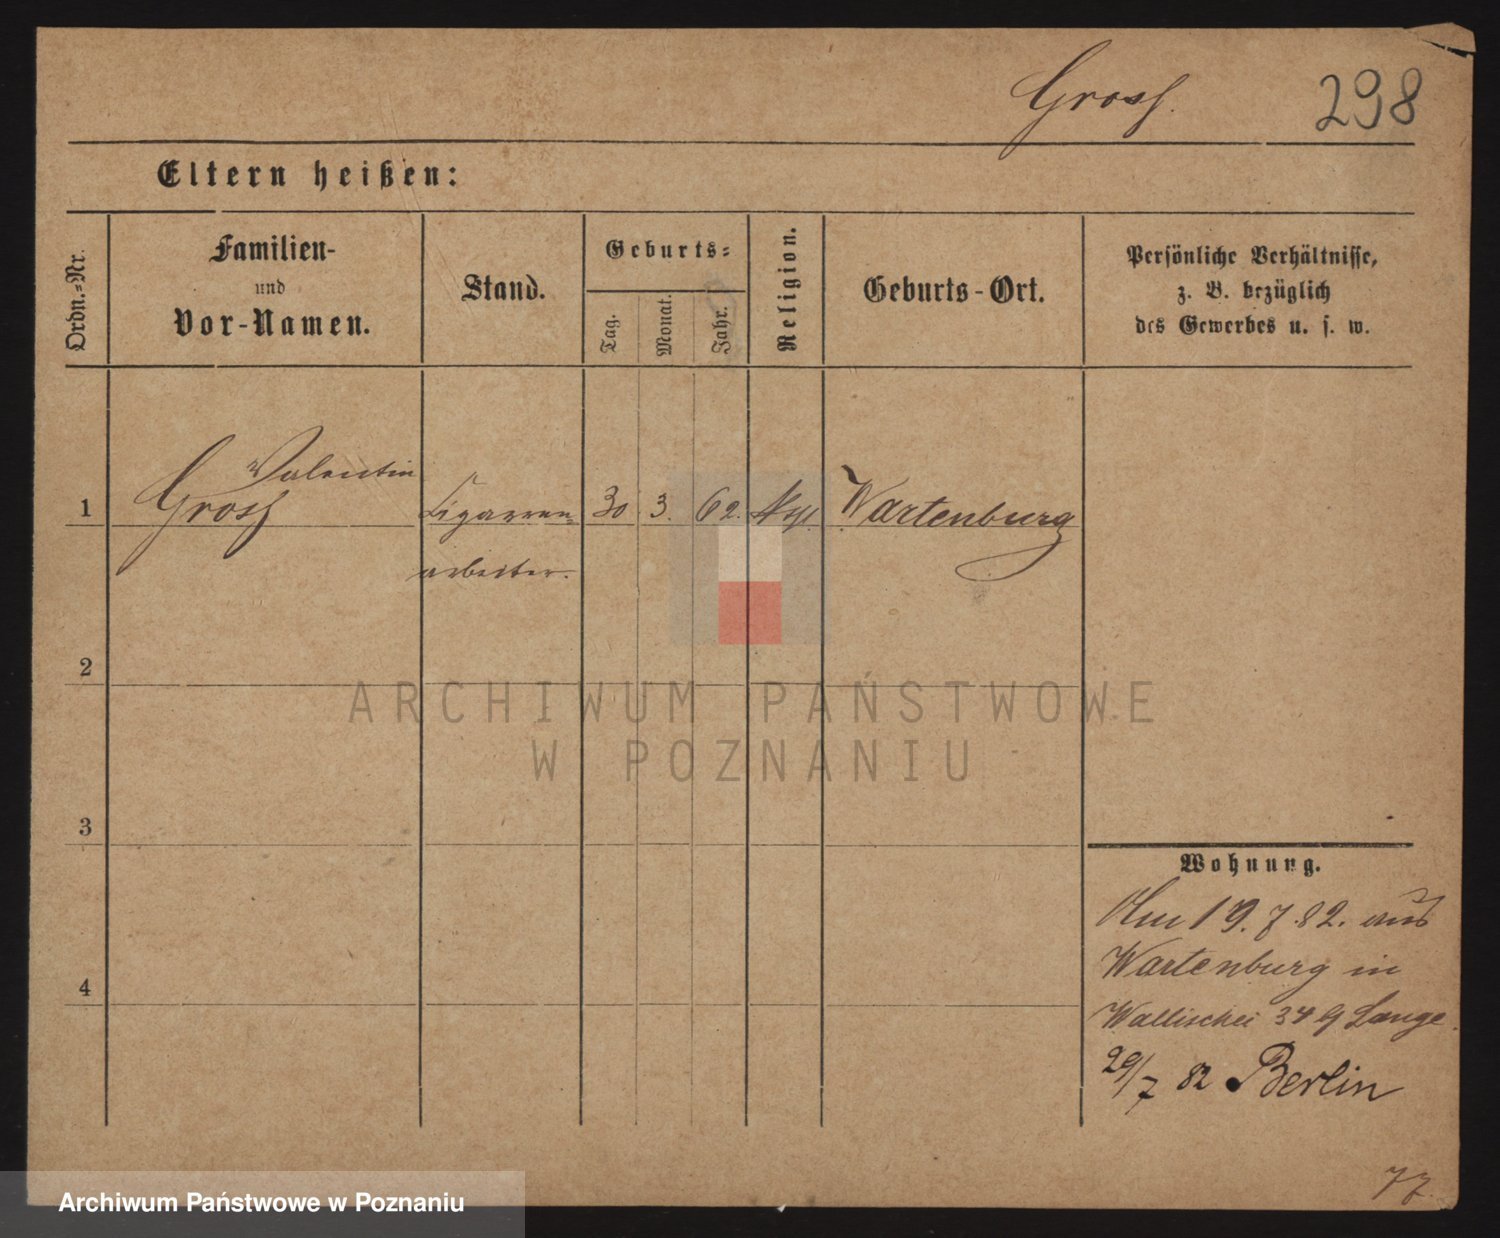 Grosz.
298
Eltern heißen:
Ordn.=Nr.
Familien-
und
Vor-Namen.
Stand.
Geburts=
Tag.
Monat.
Jahr.
Religion.
Geburts-Ort.
Persönliche Verhältnisse,
z. B. bezüglich
des Gewerbes u. s. w.
Valentin
1 Grosz Cigarren= 30 3. 62. Wartenburg
arbeiter.
2
ARCHIWUM PAŃSTWOWE
W POZNANIU
3
Wohnung.
Am 19.7.82. aus
Wartenburg in
4
Wallischei 34 Lange.
29/7 82 Berlin
77.
Archiwum Państwowe w Poznaniu